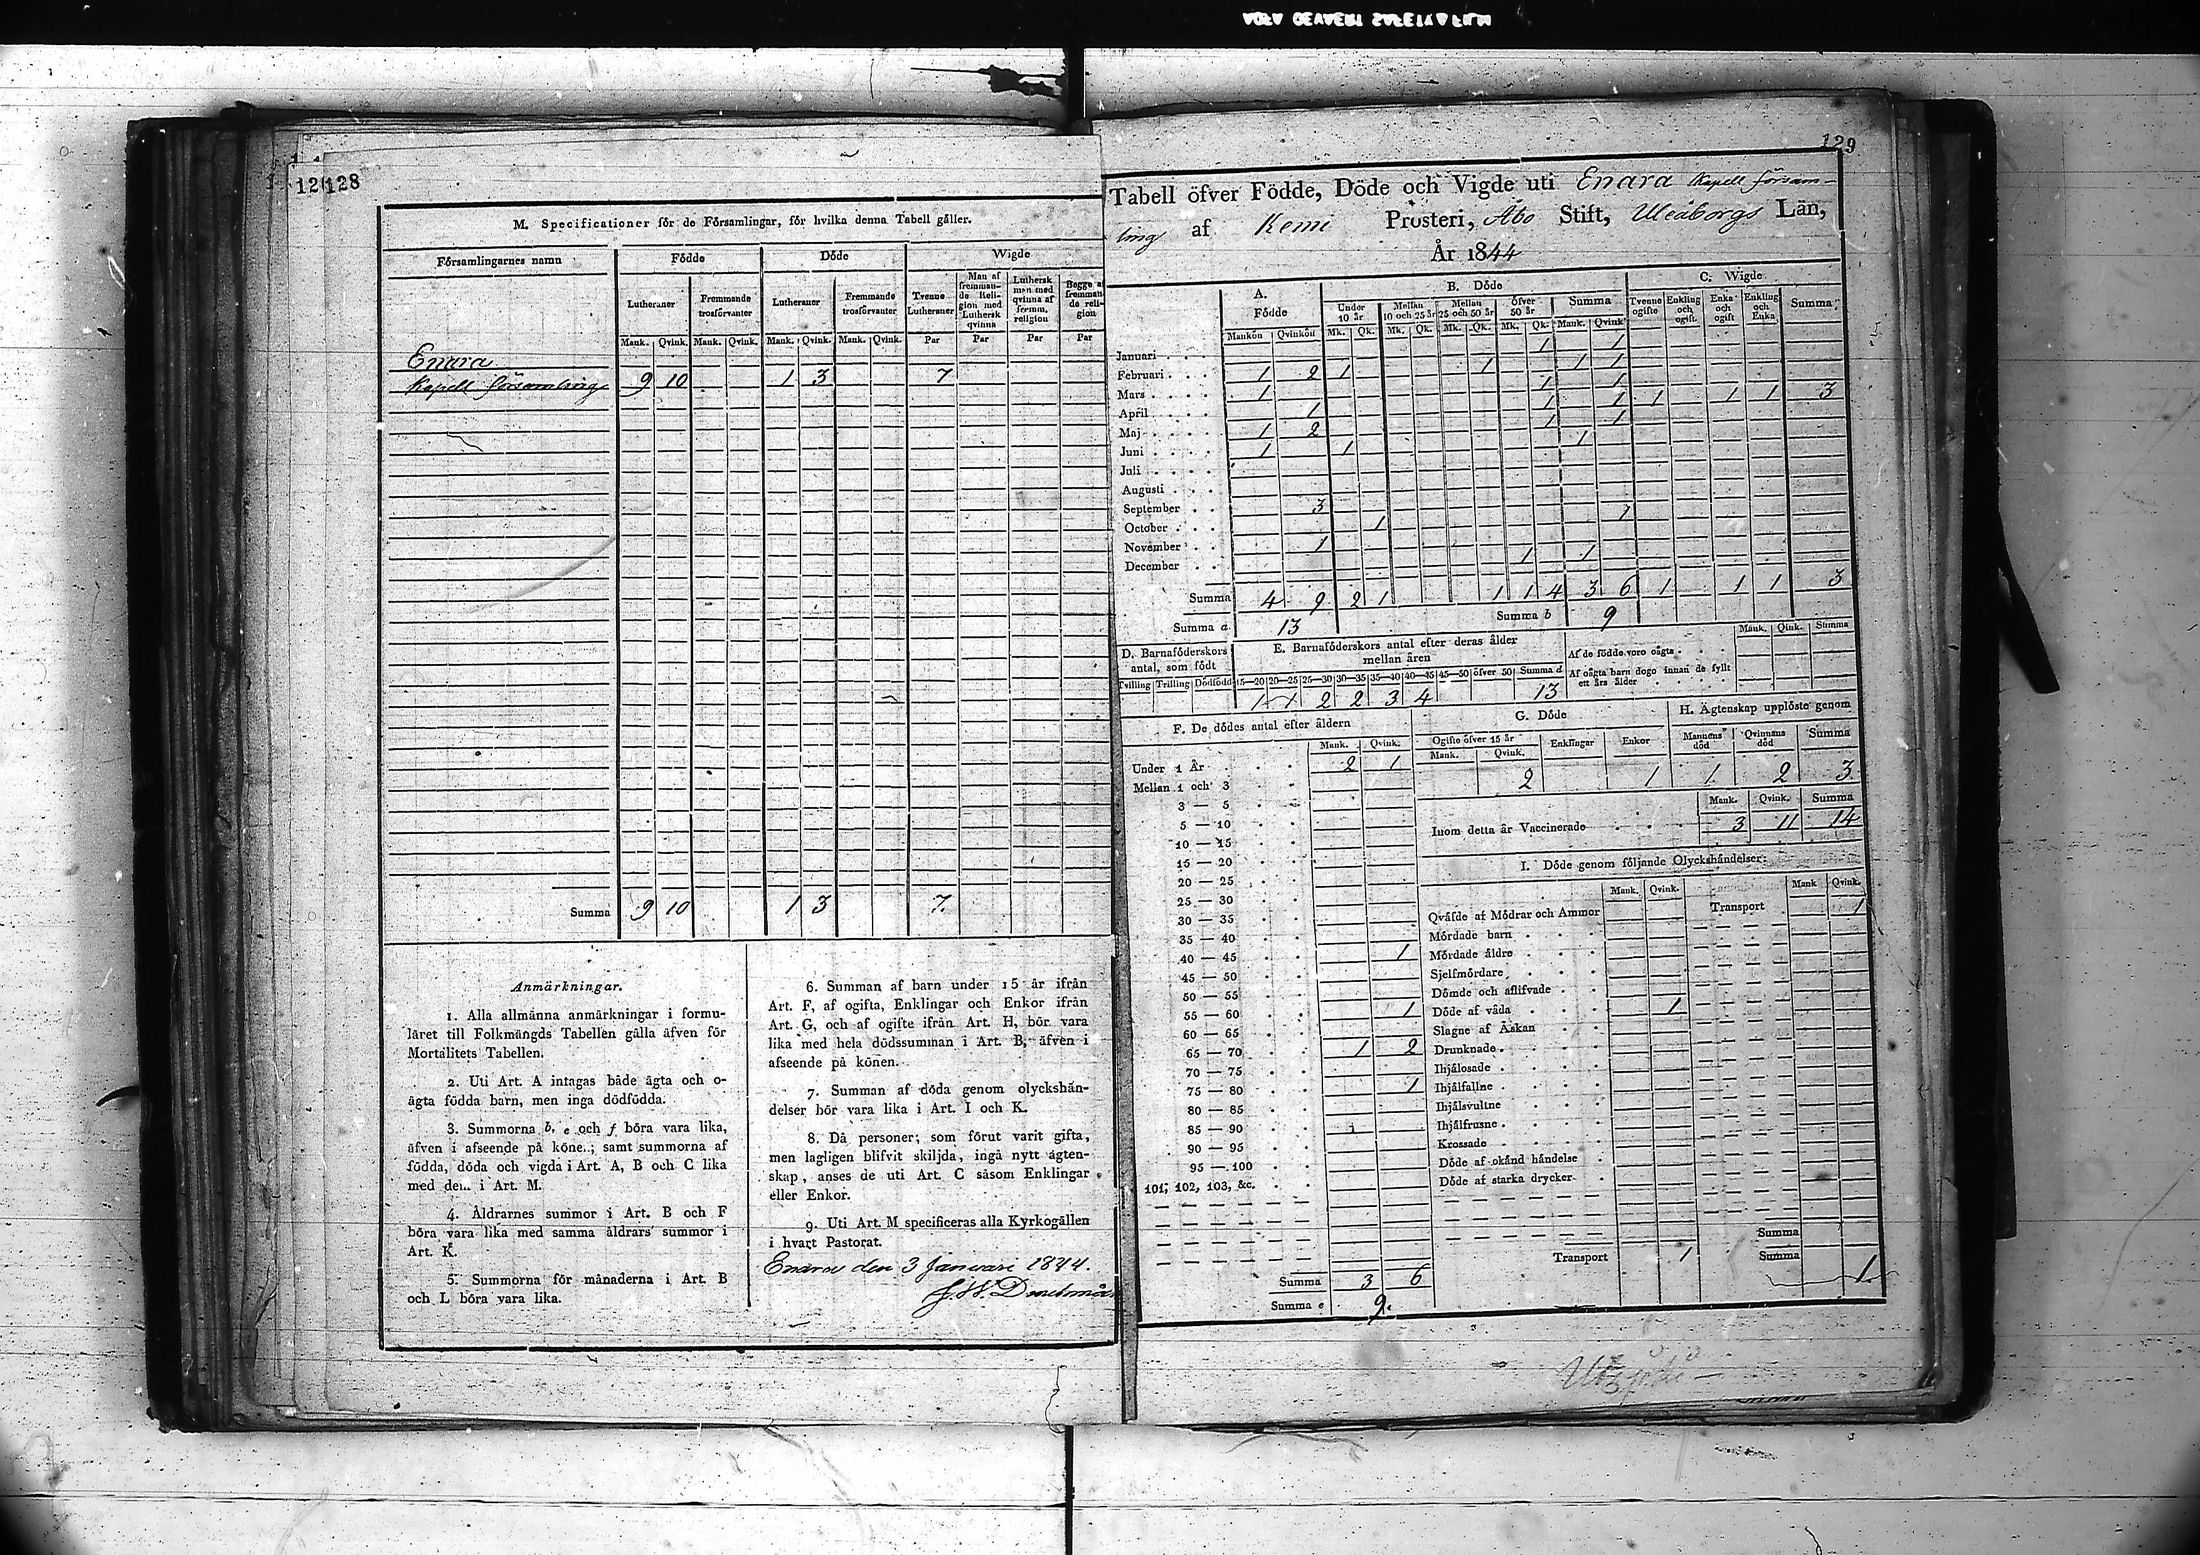 128
M. Specificationer för de Församlingar, för hvilka denna Tabell gäller.
Församlingarnes namn Födde Döde Wigde
Lutheraner Fremmande trosförvanter Lutheraner Fremmande trosförvanter Tvenne Lutheraner Man af fremmande Religion med Luthersk qvinna Luthersk man med qvinna af fremm. religion Begge af fremmande religion
Mank. Qvink. Mank. Qvink. Mank. Qvink. Mank. Qvink. Par Par Par Par
Enara
Kapell församling 9 10 1 3 7
Summa 9 10 1 3 7.
Anmärkningar.
1. Alla allmänna anmärkningar i formu-
läret till Folkmängds Tabellen gälla äfven för
Mortalitets Tabellen.
2. Uti Art. A intagas både ägta och o-
ägta födda barn, men inga dödfödda.
3. Summorna b, e och f böra vara lika,
äfven i afseende på köne..; samt summorna af
födda, döda och vigda i Art. A, B och C lika
med de... i Art. M.
4. Åldrarnes summor i Art. B och F
böra vara lika med samma åldrars summor i
Art. K.
5. Summorna för månaderna i Art. B
och L böra vara lika.
6. Summan af barn under 15 år ifrån
Art. F, af ogifta, Enklingar och Enkor ifrån
Art. G, och af ogifte ifrån Art. H, bör vara
lika med hela dödssumman i Art. B, äfven i
afseende på könen.
7. Summan af döda genom olyckshän-
delser bör vara lika i Art. I och K.
8. Då personer, som förut varit gifta,
men lagligen blifvit skiljda, ingå nytt ägten-
skap, anses de uti Art. C såsom Enklingar
eller Enkor.
9. Uti Art. M specificeras alla Kyrkogällen
i hvart Pastorat.
Enara den 3 Januari 1844.
129
Tabell öfver Födde, Döde och Vigde uti Enara Kapell församl-
ling af Kemi Prosteri, Åbo Stift, Uleåborgs Län,
År 1844
A. Födde B. Döde C. Wigde
Under 10 år Mellan 10 och 25 år Mellan 25 och 50 år öfver 50 år Summa Tvenne ogifte Enkling och ogift Enka och ogift Enkling och Enka Summa
Mankön Qvinkön Mk. Qk. Mk. Qk. Mk. Qk. Mk. Qk. Mank. Qvink.
Januari 1 1
Februari 1 2 1 1 1 1
Mars 1 1 1
April 1 1 1 1 1 1 3
Maj 1 2 1 1
Juni 1 1 1
Juli
Augusti
September 3
October 1 1
November 1
December 1 1
Summa 4 9 2 1 1 1 4 3 6 1 1 1 3
Summa a 13 Summa b 9
D. Barnaföderskors antal, som födt
Tvilling Trilling Dödfödd
E. Barnaföderskors antal efter deras ålder mellan åren
15—20 20—25 25—30 30—35 35—40 40—45 45—50 öfver 50 Summa d
1 1 2 2 3 4 13
Mank. Qink. Summa
Af de födde voro oägta
Af oägta barn dogo innan de fyllt
ett års ålder
F. De dödes antal efter åldern
Mank. Qvink.
Under 1 År 2 1
Mellan 1 och 3
3 — 5
5 — 10
10 — 15
15 — 20
20 — 25
25 — 30
30 — 35
35 — 40
40 — 45 1
45 — 50
50 — 55
55 — 60 1
60 — 65
65 — 70 1 2
70 — 75
75 — 80 1
80 — 85
85 — 90 1
90 — 95
95 — 100
101, 102, 103, &c.
Summa 3 6
Summa e 9.
G. Döde
Ogifte öfver 15 år Enklingar Enkor
Mank. Qvink.
2 1
H. Ägtenskap upplöste genom
Mannens död Qvinnans död Summa
1 2 3
Mank. Qvink. Summa
Inom detta år Vaccinerade 3 11 14
I. Döde genom följande Olyckshändelser:
Mank. Qvink. Mank Qvink.
Qväfde af Mödrar och Ammor Transport 1
Mördade barn
Mördade äldre
Sjelfmördare
Dömde och aflifvade
Döde af våda 1
Slagne af Åskan
Drunknade
Ihjälosade
Ihjälfallne
Ihjälsvultne
Ihjälfrusne
Krossade
Döde af okänd händelse
Döde af starka drycker
Summa
Transport 1 Summa 1